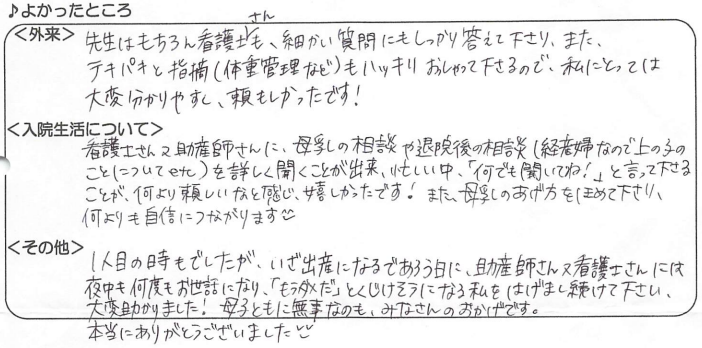 ♪よかったところ
<外来> 先生はもちろん看護士さんも、細かい質問にもしっかり答えて下さり、また、
テキパキと指摘(体重管理など)もハッキリおしゃって下さるので、私にとっては
大変分かりやすく、頼もしかったです！
<入院生活について>
看護士さん又助産師さんに、母乳の相談や退院後の相談(経産婦なので上の子の
ことについてetc)を詳しく聞くことが出来、忙しい中、「何でも聞いてね！」と言って下さる
ことが、何より頼しいなと感じ、嬉しかったです！また、母乳のあげ方をほめて下さり、
何よりも自信につながります
<その他>
1人目の時もでしたが、いざ出産になるであろう日に、助産師さん又看護士さんには
夜中も何度もお世話になり、「もうダメだ」とくじけそうになる私をはげまし続けて下さい、
大変助かりました！母子ともに無事なのも、みなさんのおかげです。
本当にありがとうございました